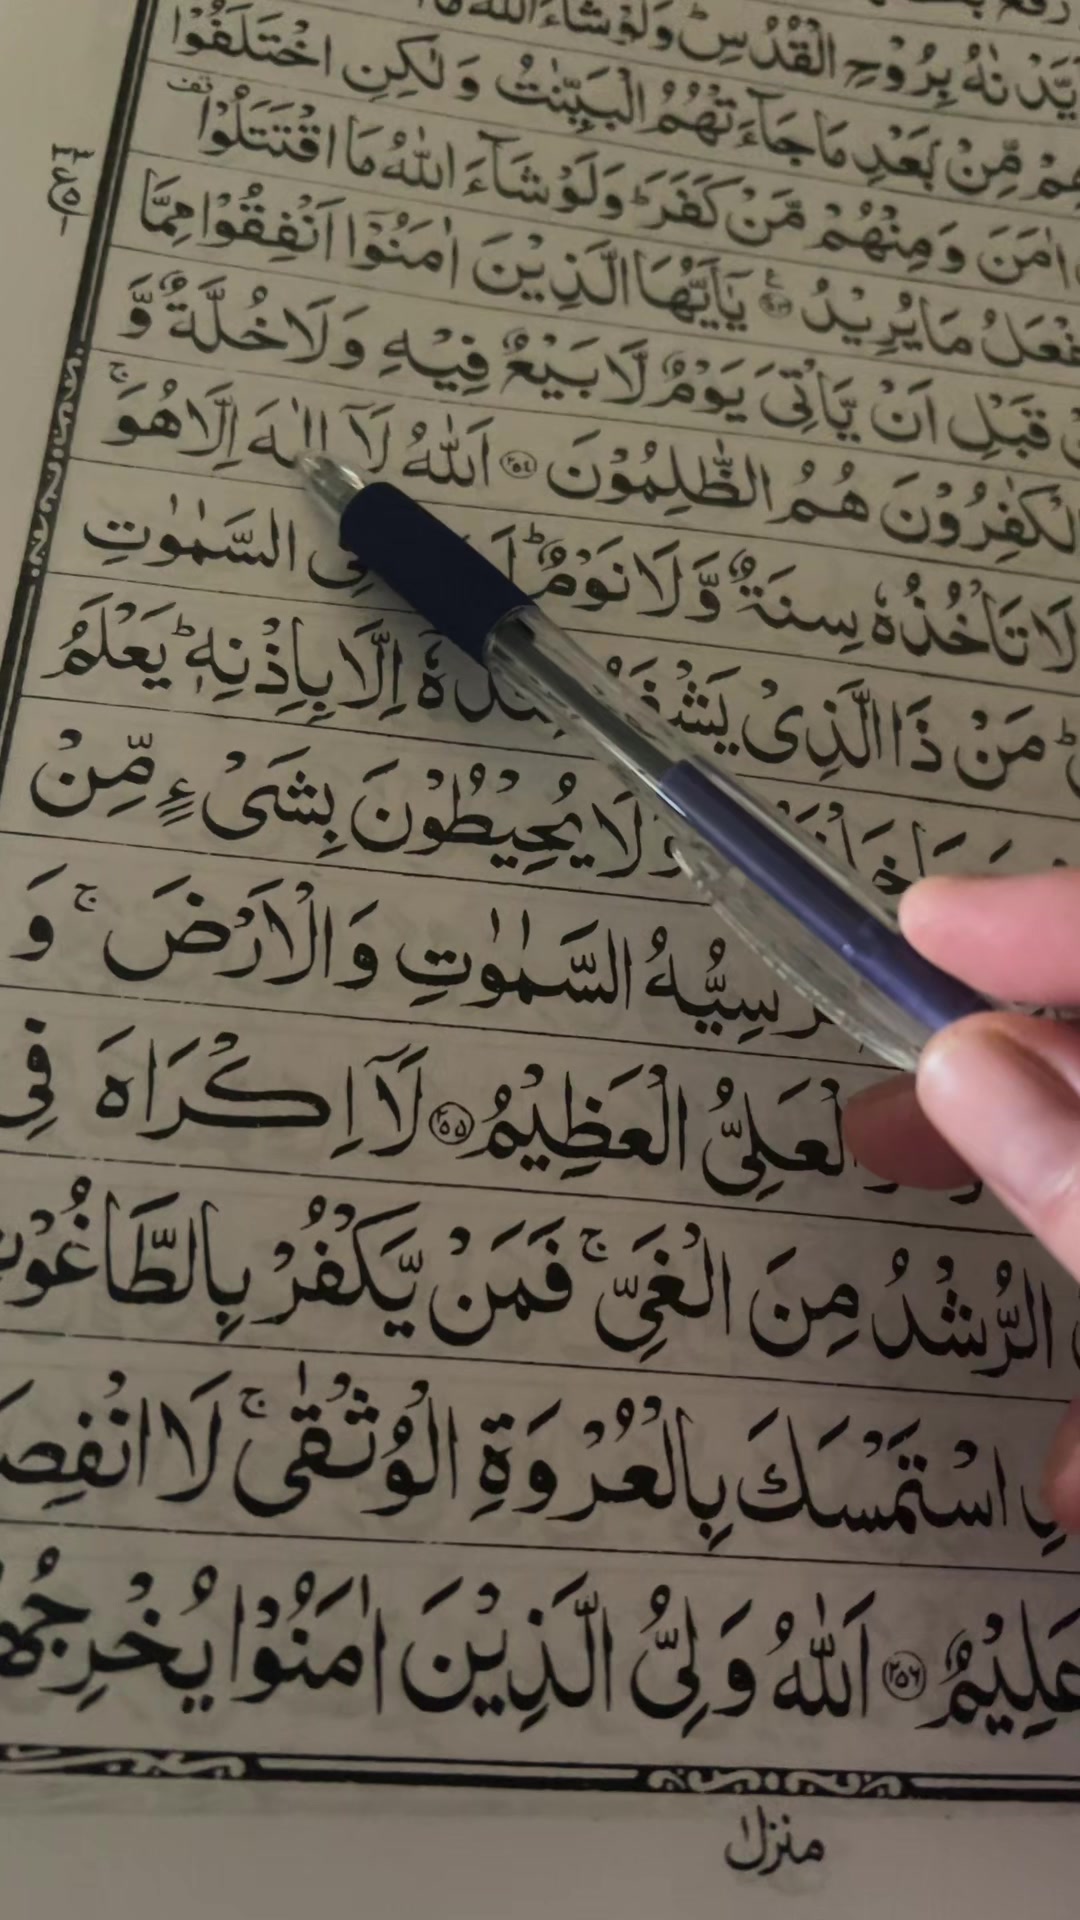 بِرُوْحِ الْقُدُسِ ؕ وَلَوْ شَآءَ اللّٰهُ
مِّنْۢ بَعْدِ مَا جَآءَتْهُمُ الْبَيِّنٰتُ وَلٰكِنِ اخْتَلَفُوْا
اٰمَنَ وَمِنْهُمْ مَّنْ كَفَرَ ؕ وَلَوْ شَآءَ اللّٰهُ مَا اقْتَتَلُوْا
مَا يُرِيْدُ ۝۲۵۳ يٰۤاَيُّهَا الَّذِيْنَ اٰمَنُوْۤا اَنْفِقُوْا مِمَّا
قَبْلِ اَنْ يَّاْتِىَ يَوْمٌ لَّا بَيْعٌ فِيْهِ وَلَا خُلَّةٌ وَّ
الْكٰفِرُوْنَ هُمُ الظّٰلِمُوْنَ ۝۲۵۴ اَللّٰهُ لَاۤ اِلٰهَ اِلَّا هُوَ ۚ
لَا تَاْخُذُهٗ سِنَةٌ وَّلَا نَوْمٌ ؕ السَّمٰوٰتِ
مَنْ ذَا الَّذِىْ اِلَّا بِاِذْنِهٖ ؕ يَعْلَمُ
وَلَا يُحِيْطُوْنَ بِشَىْءٍ مِّنْ
السَّمٰوٰتِ وَالْاَرْضَ ۚ وَ
الْعَلِىُّ الْعَظِيْمُ ۝۲۵۵ لَاۤ اِكْرَاهَ فِى
الرُّشْدُ مِنَ الْغَىِّ ۚ فَمَنْ يَّكْفُرْ
اسْتَمْسَكَ بِالْعُرْوَةِ الْوُثْقٰى ۚ لَا
عَلِيْمٌ ۝۲۵۶ اَللّٰهُ وَلِىُّ الَّذِيْنَ اٰمَنُوْا
منزل ۱